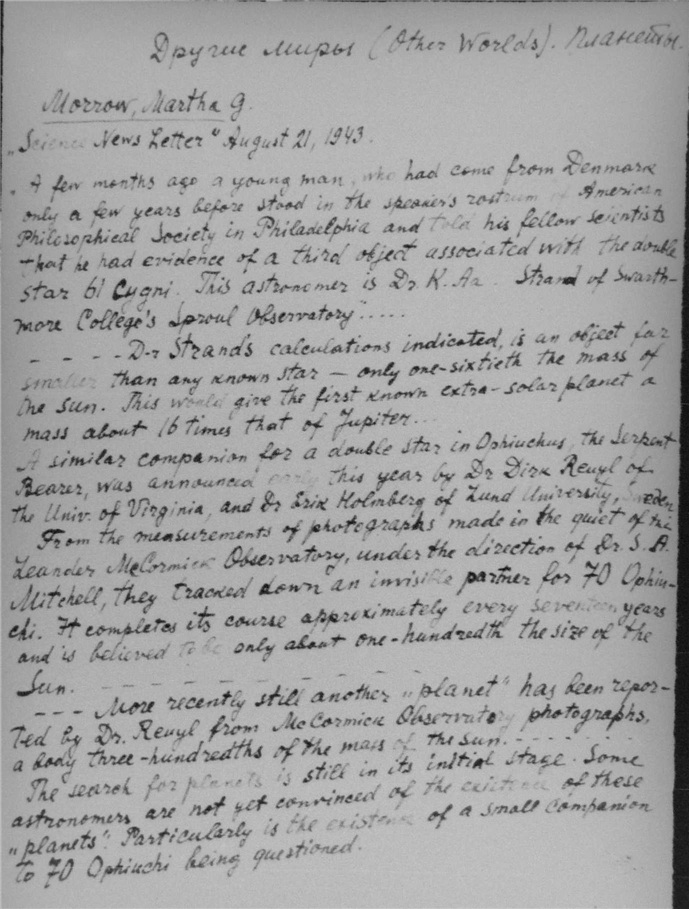 Другие миры (Other Worlds). Планеты.
Morrow, Martha G.
„Science News Letter" August 21, 1943.
„A few months ago a young man, who had come from Denmark
only a few years before stood in the speaker's rostrum of American
Philosophical Society in Philadelphia and told his fellow scientists
that he had evidence of a third object associated with the double
star 61 Cygni. This astronomer is Dr. K. Aa. Strand of Swarth-
more College's Sproul Observatory".....
- - - - Dr Strand's calculations indicated, is an object far
smaller than any known star — only one-sixtieth the mass of
the sun. This would give the first known extra-solar planet a
mass about 16 times that of Jupiter...
A similar companion for a double star in Ophiuchus, the Serpent
Bearer, was announced early this year by Dr Dirk Reuyl of
the Univ. of Virginia, and Dr Erik Holmberg of Lund University, Sweden
From the measurements of photographs made in the quiet of the
Leander McCormick Observatory, under the direction of Dr. S. A.
Mitchell, they tracked down an invisible partner for 70 Ophiu-
chi. It completes its course approximately every seventeen years
and is believed to be only about one-hundredth the size of the
Sun. - - - - - - - - - - - - - - -
- - - More recently still another „planet" has been repor-
ted by Dr. Reuyl from McCormick Observatory photographs,
a body three-hundredths of the mass of the sun. - - - - - - -
The search for planets is still in its initial stage. Some
astronomers are not yet convinced of the existence of these
„planets". Particularly is the existence of a small companion
to 70 Ophiuchi being questioned.